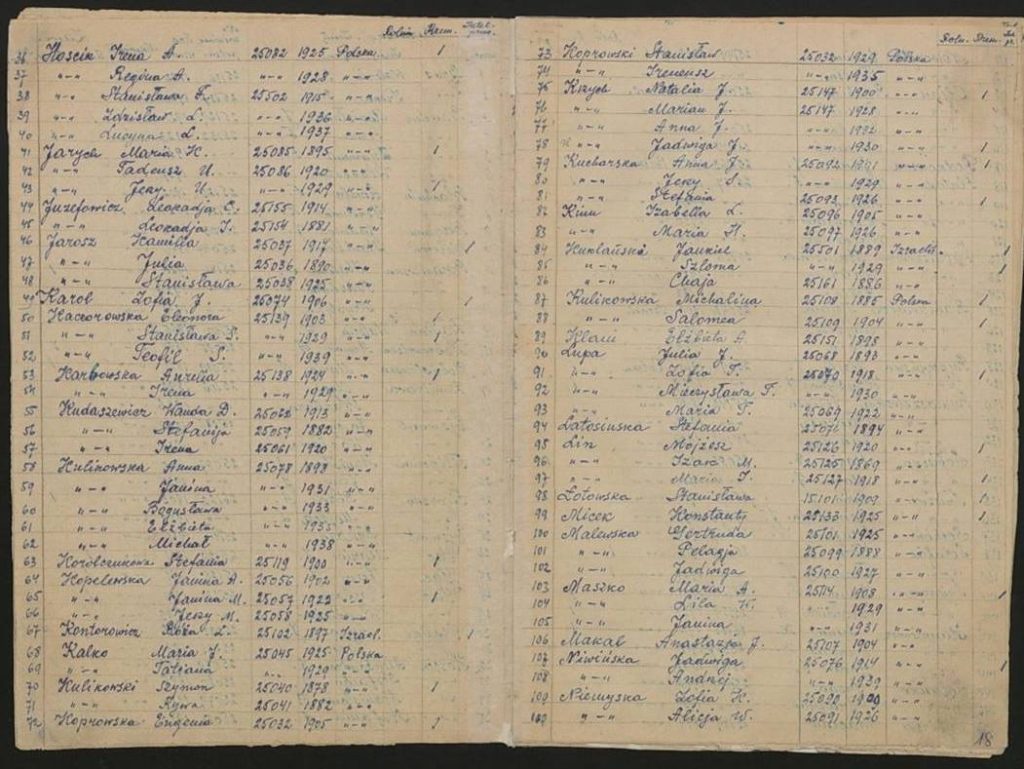 Rolnik Rzem. Intel. prac.
36 Hoscik Irena A. 25082 1925 Polska 1
37 „-„ Regina A. „-„ 1928 „-„
38 „-„ Stanisława F. 25502 1915 „-„
39 „-„ Zdzisław L. „-„ 1936 „-„
40 „-„ Lucyna L. „-„ 1937 „-„
41 Jarych Maria K. 25085 1895 „-„ 1
42 „-„ Tadeusz U. 25086 1920 „-„
43 „-„ Jerzy U. „-„ 1929 „-„ 1
44 Juzefowicz Leokadja C. 25155 1914 „-„
45 „-„ Leokadja J. 25154 1881 „-„
46 Jarosz Kamilla 25037 1917 „-„ 1
47 „-„ Julia 25036 1890 „-„
48 „-„ Stanisława 25038 1925 „-„
49 Karol Zofia J. 25074 1906 „-„ 1
50 Kaczorowska Eleonora 25139 1903 „-„ 1
51 „-„ Stanisława S. „-„ 1929 „-„ 1
52 „-„ Teofil S. „-„ 1939 „-„
53 Karbowska Aurelia 25138 1924 „-„ 1
54 „-„ Irena „-„ 1929 „-„
55 Kudaszewicz Wanda D. 1913 „-„
56 „-„ Stefanija 25059 1882 „-„
57 „-„ Irena 25061 1920 „-„
58 Kulikowska Anna 25078 1898 „-„
59 „-„ Janina „-„ 1931 „-„
60 „-„ Bogusława „-„ 1933 „-„
61 „-„ Elżbieta „-„ 1935 „-„
62 „-„ Michał „-„ 1938 „-„
63 Stefania 25119 1900 „-„ 1
64 Kopelewska Janina A. 25056 1902 „-„
65 „-„ Janina M. 25057 1923 „-„ 1
66 „-„ Jerzy M. 25058 1925 „-„
67 Kontorowicz Róża L. 25102 1897 Izrael. 1
68 Kalko Maria J. 25045 1925 Polska
69 „-„ Tatjana „-„ 1929 „-„
70 Kulikowski Szymon 25040 1878 „-„ 1
71 „-„ Rywa 25041 1882 „-„
72 Koprowska Eugenia 25032 1905 „-„ 1
Roln. Rzem.
73 Koprowski Stanisław 25032 1929 Polska
74 „-„ Ireneusz „-„ 1935 „-„
75 Krzych Natalia J. 25147 1900 „-„ 1
76 „-„ Marian J. 25147 1928 „-„
77 „-„ Anna J. „-„ „-„
78 „-„ Jadwiga J. „-„ 1930 „-„ 1
79 Kucharska Anna J. 25092 1901 „-„ 1
80 „-„ Jerzy S. „-„ 1929 „-„
81 „-„ Stefania 25093 1926 „-„ 1
82 Kinu Izabella L. 25096 1905 „-„
83 „-„ Maria H. 25097 1926 „-„
84 Jankiel 25501 1889 Izraelit. 1
85 „-„ Szloma „-„ 1929 „-„ 1
86 „-„ Chaja 25161 1886 „-„
87 Kulikowska Michalina 25108 1885 Polska 1
88 „-„ Salomea 25109 1904 „-„ 1
89 Elżbieta A. 25151 1898 „-„
90 Łupa Julia J. 25068 1893 „-„
91 „-„ Zofia T. 25070 1918 „-„ 1
92 „-„ Mieczysława T. „-„ 1930 „-„
93 „-„ Maria T. 25069 1922 „-„
94 Latosinska Stefania 25071 1894 „-„
95 Lin Mojżesz 25126 1920 „-„ 1
96 „-„ M. 25125 1869 „-„
97 „-„ Maria J. 25127 1918 „-„ 1
98 Łotowska Stanisława 15101 1909 „-„ 1
99 Micek Konstanty 25133 1925 „-„ 1
100 Malewska Gertruda 25101 1925 „-„
101 „-„ Pelagja 25099 1888 „-„
102 „-„ Jadwiga 25100 1927 „-„
103 Maszko Maria A. 25114 1908 „-„ 1
104 „-„ Lila K. „-„ 1929 „-„
105 „-„ Janina „-„ 1931 „-„
106 Makal Anastazja J. 25107 1904 „-„
107 Niwińska Jadwiga 25076 1914 „-„ 1
108 „-„ Andrzej „-„ 1939 „-„
109 Niemyska Zofia K. 25090 1900 „-„
„-„ Alicja W. 25091 1926 „-„
18